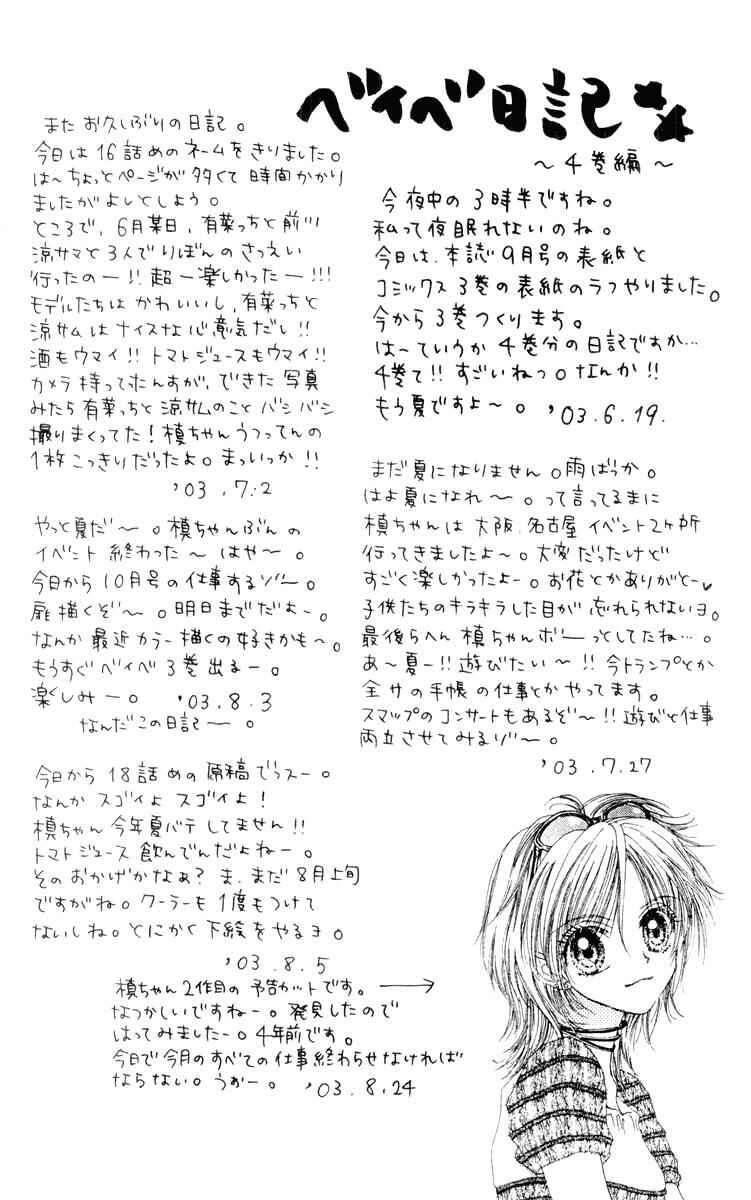 ベイベ日記
～4巻編～
今夜中の3時半ですね。
私って夜眠れないのね。
今日は、本誌9月号の表紙と
コミックス3巻の表紙のラフやりました。
今から3巻つくります。
は～ていうか4巻分の日記ですか…
4巻て!!すごいねっ。なんか!!
もう夏ですよ～。'03.6.19.
また お久しぶりの日記。
今日は16話めのネームをきりました。
は～ちょっとページが多くて時間かかり
ましたがよしとしよう。
ところで、6月某日、有菜っちと前川
涼サマと3人でりぼんのさつえい
行ったのー!!超ー楽しかったー!!!
モデルたちはかわいいし、有菜っちと
涼サムはナイスな心意気だし!!
酒もウマイ!!トマトジュースもウマイ!!
カメラ持ってたんすが、できた写真
みたら有菜っちと涼サムのことバシバシ
撮りまくってた!槙ちゃんうつってんの
1枚こっきりだったよ。まっいっか!!
'03.7.2
まだ夏になりません。雨ばっか。
はよ夏になれ～。って言ってるまに
槙ちゃんは大阪、名古屋イベント2ヶ所
行ってきましたよ～。大変だったけど
すごく楽しかったよー。お花とかありがとー♥
子供たちのキラキラした目が忘れられないヨ。
最後らへん槙ちゃんボーっとしてたね…。
あ～夏ー!!遊びたい～!!今トランプとか
全サの手帳の仕事とかやってます。
スマップのコンサートもあるぞ～!!遊びと仕事
両立させてみるゾ～。
'03.7.27
やっと夏だ～。槙ちゃんぶんの
イベント終わった～はや～。
今日から10月号の仕事するゾ～。
扉描くぞ～。明日までだよ～。
なんか最近カラー描くの好きかも～。
もうすぐベイベ3巻出るー。
楽しみー。'03.8.3
なんだこの日記ー。
今日から18話めの原稿でっスー。
なんかスゴイよスゴイよ!
槙ちゃん今年夏バテしてません!!
トマトジュース飲んでんだよねー。
そのおかげかなぁ?ま、まだ8月上旬
ですがね。クーラーも1度もつけて
ないしね。とにかく下絵をやるヨ。
'03.8.5
槙ちゃん2作目の予告カットです。→
なつかしいですねー。発見したので
はってみましたー。4年前です。
今日で今月のすべての仕事終わらせなければ
ならない。うおー。'03.8.24